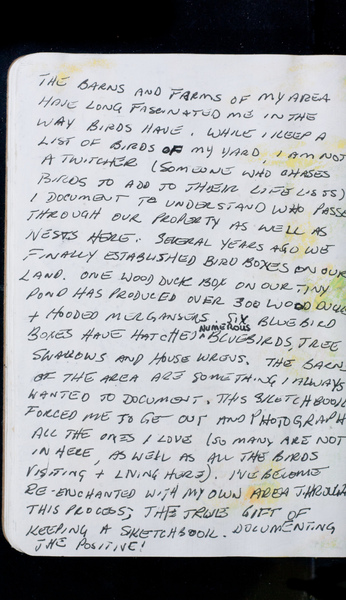 THE BARNS AND FARMS OF MY AREA
HAVE LONG FASCINATED ME IN THE
WAY BIRDS HAVE. WHILE I KEEP A
LIST OF BIRDS OF MY YARD, I AM NOT
A TWITCHER (SOMEONE WHO CHASES
BIRDS TO ADD TO THEIR LIFE LISTS)
I DOCUMENT TO UNDERSTAND WHO PASSES
THROUGH OUR PROPERTY AS WELL AS
NESTS HERE. SEVERAL YEARS AGO WE
FINALLY ESTABLISHED BIRD BOXES ON OUR
LAND. ONE WOOD DUCK BOX ON OUR TINY
POND HAS PRODUCED OVER 300 WOOD DUCKS
+ HOODED MERGANSERS. SIX BLUEBIRD
BOXES HAVE HATCHED NUMEROUS BLUEBIRDS, TREE
SWALLOWS AND HOUSE WRENS. THE BARNS
OF THE AREA ARE SOMETHING I ALWAYS
WANTED TO DOCUMENT. THIS SKETCHBOOK
FORCED ME TO GET OUT AND PHOTOGRAPH
ALL THE ONES I LOVE (SO MANY ARE NOT
IN HERE, AS WELL AS ALL THE BIRDS
VISITING + LIVING HERE). I'VE BECOME
RE-ENCHANTED WITH MY OWN AREA THROUGH
THIS PROCESS; THE TRUE GIFT OF
KEEPING A SKETCHBOOK. DOCUMENTING
THE POSITIVE!